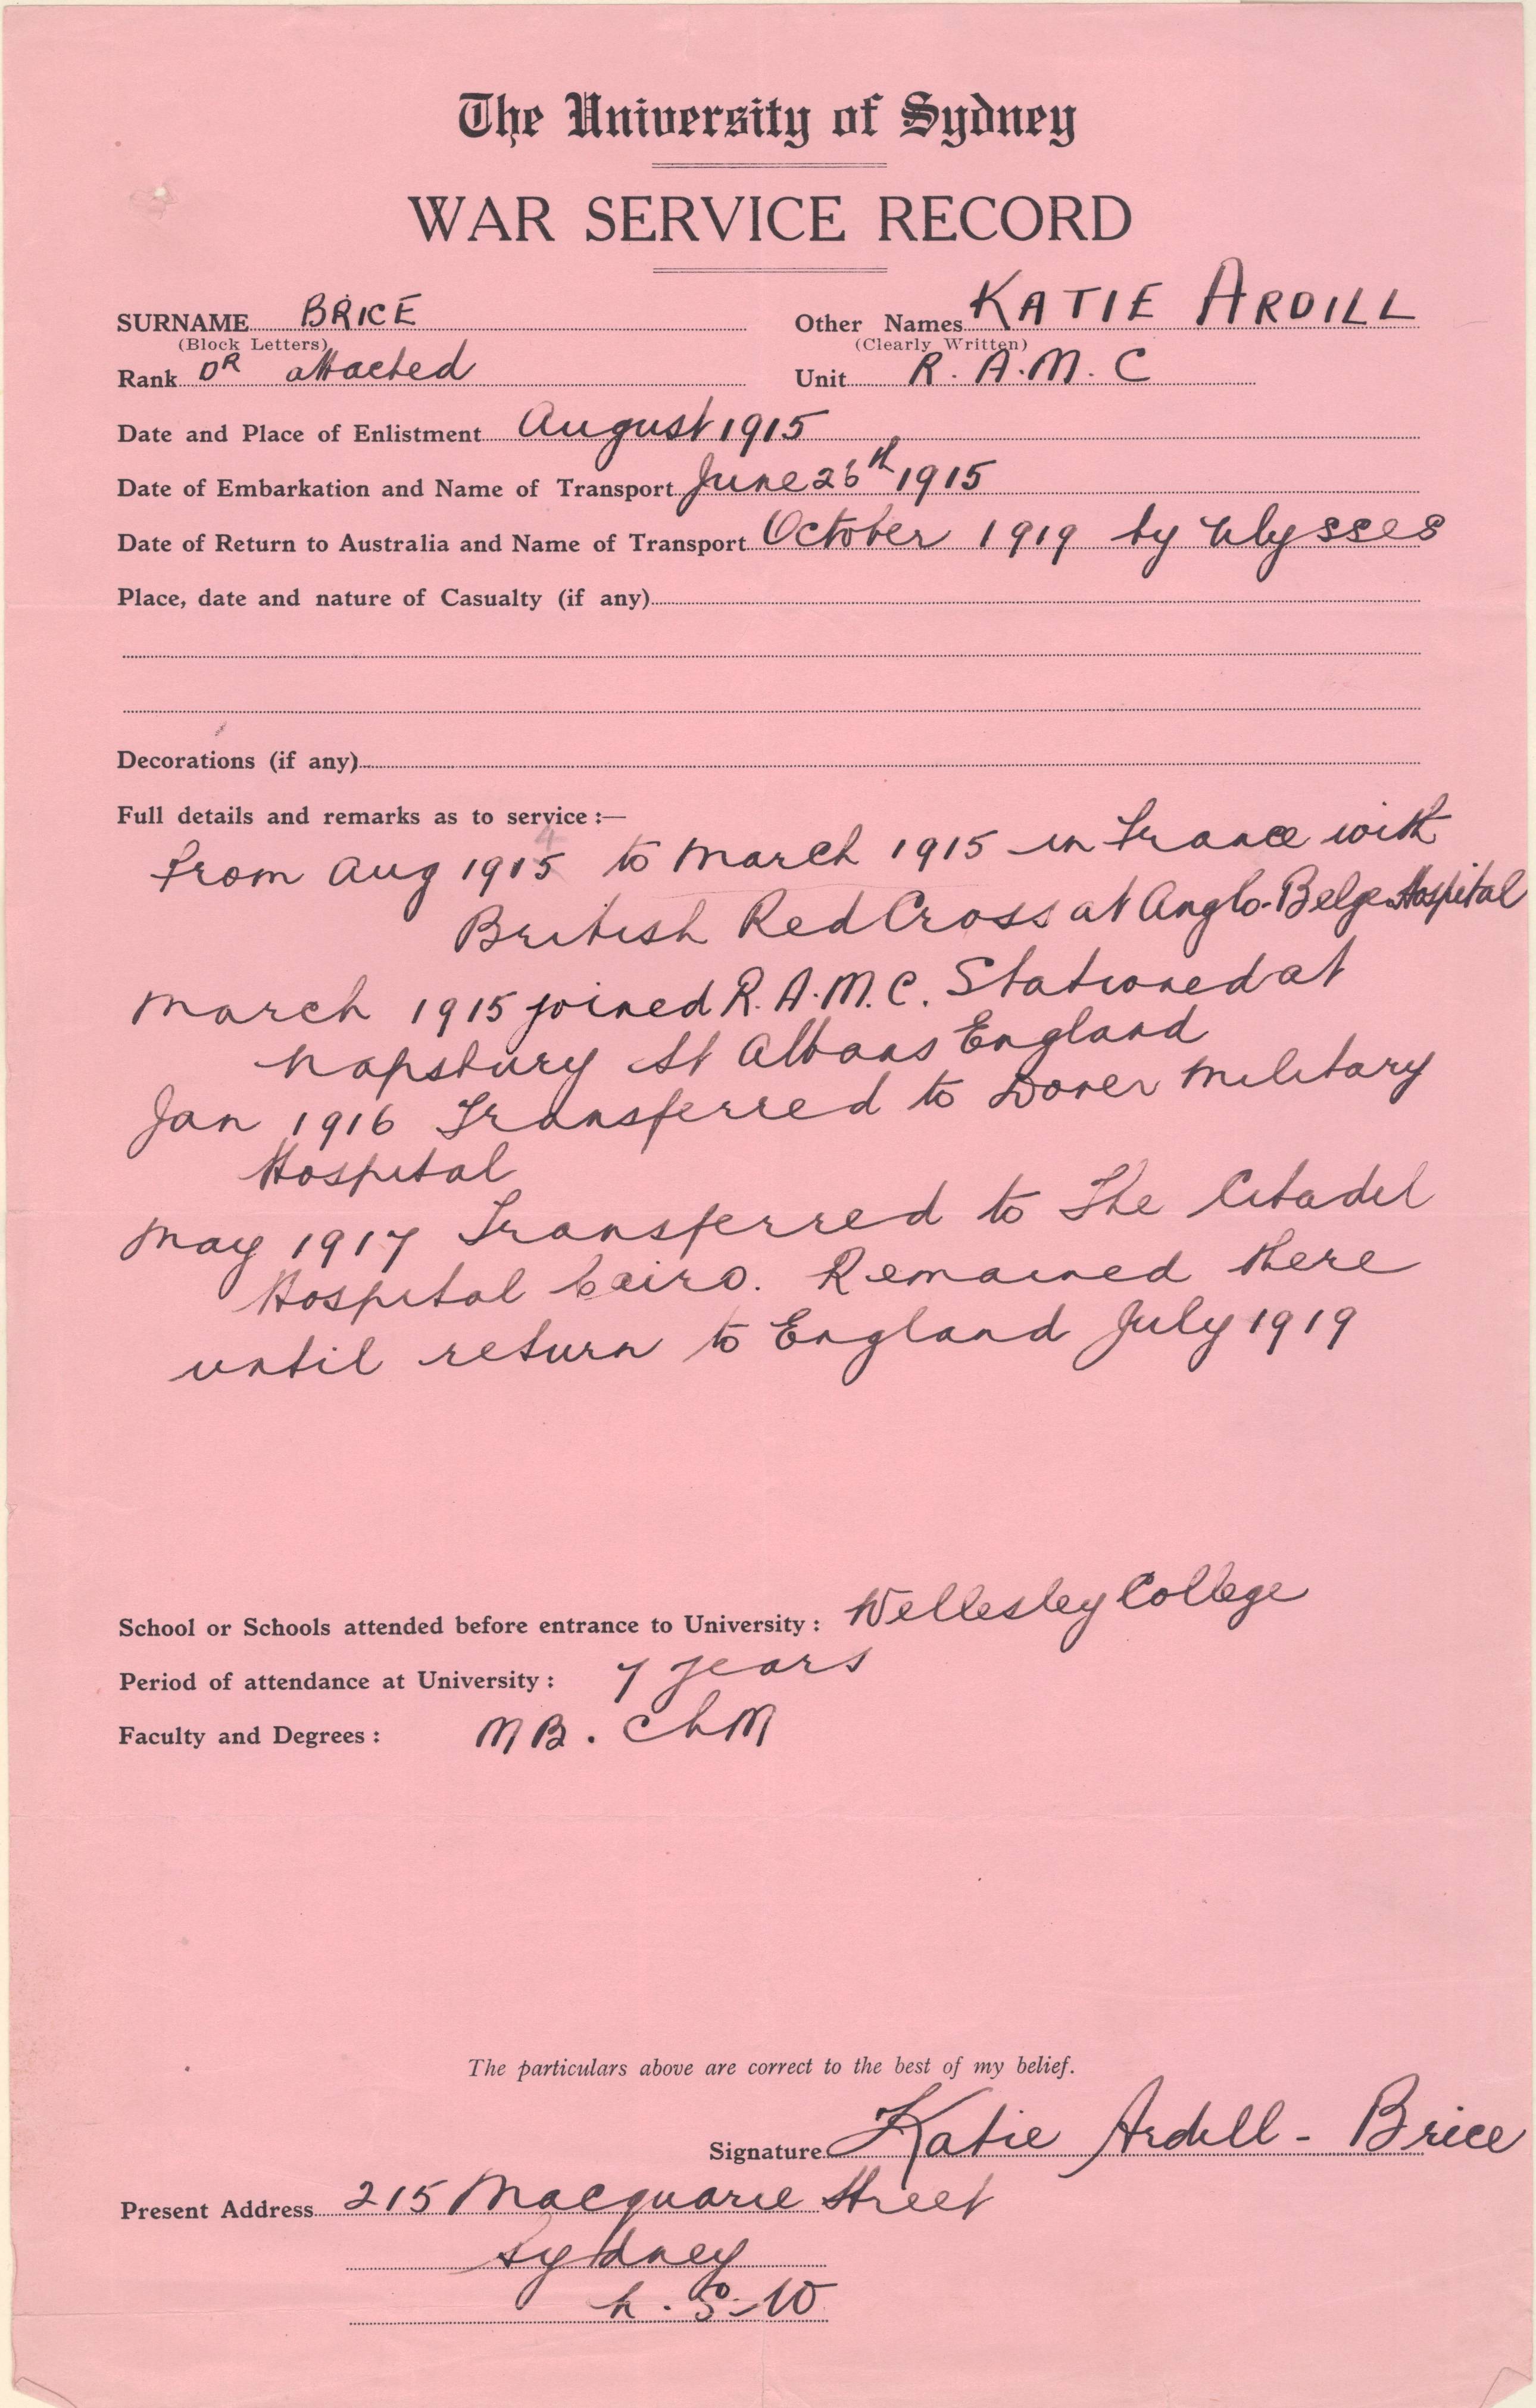 The University of Sydney
WAR SERVICE RECORD
SURNAME BRICE Other Names KATIE ARDILL
(Block Letters) (Clearly Written)
Rank DR attached Unit R. A. M. C
Date and Place of Enlistment August 1915
Date of Embarkation and Name of Transport June 26th 1915
Date of Return to Australia and Name of Transport October 1919 by Ulysses
Place, date and nature of Casualty (if any)
Decorations (if any)
Full details and remarks as to service :—
4
From Aug 1915 to March 1915 in France with
British Red Cross at Anglo-Belge Hospital
March 1915 joined R. A. M. C. Stationed at
Napsbury St Albans England
Jan 1916 Transferred to Dover Military
Hospital
May 1917 Transferred to The Citadel
Hospital Cairo. Remained there
until return to England July 1919
School or Schools attended before entrance to University : Wellesley College
Period of attendance at University : 7 years
Faculty and Degrees : MB. ChM
The particulars above are correct to the best of my belief.
Signature Katie Ardill - Brice
Present Address 215 Macquarie Street
Sydney
N. S. W